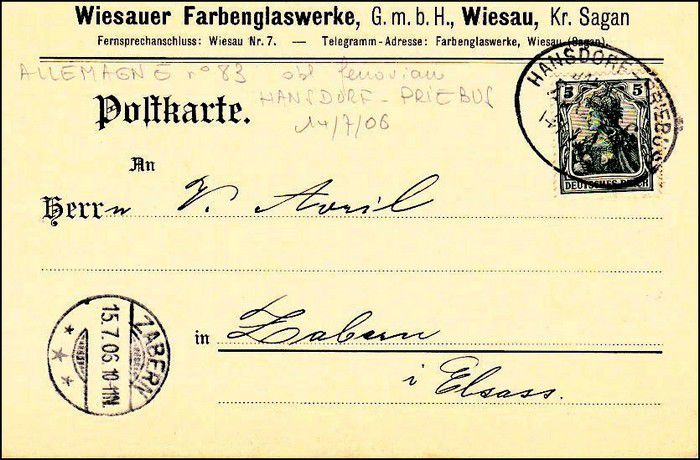 Wiesauer Farbenglaswerke, G. m. b. H., Wiesau, Kr. Sagan
Fernsprechanschluss: Wiesau Nr. 7. — Telegramm-Adresse: Farbenglaswerke, Wiesau (Sagan).
ALLEMAGNE n° 83 obl
HANSDORF - PRIEBUS
14/7/06
HANSDORF-PRIEBUS
5 5
DEUTSCHES REICH
Postkarte.
An
Herrn V. Avril
in Zabern
i Elsass.
ZABERN
15.7.06 10-11N.